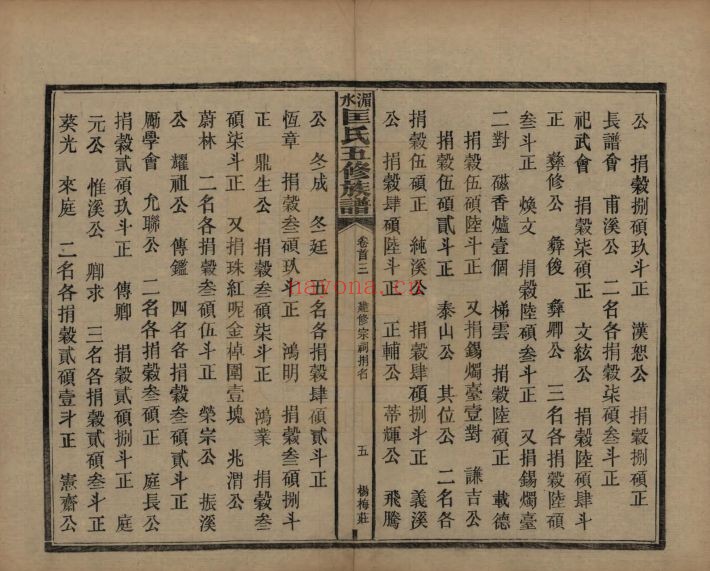 公 捐穀捌碩玖斗正 漢恕公 捐穀捌碩正
長譜會 甫溪公 二名各捐穀柒碩叁斗正
祀武會 捐穀柒碩正 文絃公 捐穀陸碩肆斗
正 彝修公 彝俊 彝卿公 三名各捐穀陸碩
叁斗正 煥文 捐穀陸碩叁斗正 又捐錫燭臺
二對 磁香爐壹個 梯雲 捐穀陸碩正 載德
捐穀伍碩陸斗正 又捐錫燭臺壹對 謙吉公
捐穀伍碩貳斗正 泰山公 其位公 二名各
捐穀伍碩正 純溪公 捐穀肆碩捌斗正 義溪
公 捐穀肆碩陸斗正 正輔公 蒂輝公 飛騰
湄水匡氏五修族譜 卷首三 建修宗祠捐名 五 楊梅莊
公 冬成 冬廷 五名各捐穀肆碩貳斗正
恆章 捐穀叁碩玖斗正 鴻明 捐穀叁碩捌斗
正 鼎生公 捐穀叁碩柒斗正 鴻業 捐穀叁
碩柒斗正 又捐珠紅呢金棹圍壹塊 兆渭公
蔚林 二名各捐穀叁碩伍斗正 榮宗公 振溪
公 耀祖公 傳鑑 四名各捐穀叁碩貳斗正
勵學會 允聯公 二名各捐穀叁碩正 庭長公
捐穀貳碩玖斗正 傳卿 捐穀貳碩捌斗正 庭
元公 惟溪公 卿求 三名各捐穀貳碩叁斗正
葵光 來庭 二名各捐穀貳碩壹斗正 憲齋公
hayona.cn